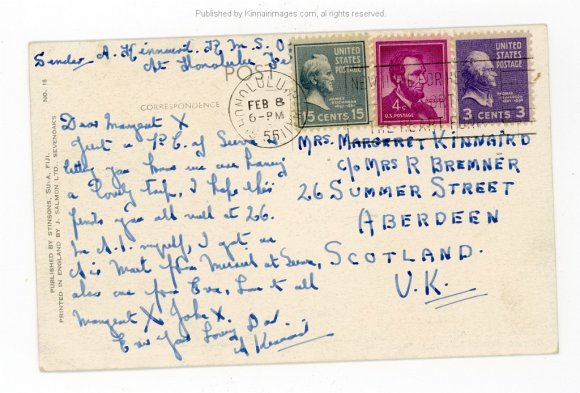 Published by Kinnairnimages.com, all rights reserved.
Sender A. Kinnaird. R M S O
At Honolulu
POST
HONOLULU
FEB 8
6-PM
55
UNITED STATES POSTAGE
15 CENTS 15
4¢
U.S. POSTAGE
UNITED STATES POSTAGE
3 CENTS 3
NO. 18
CORRESPONDENCE
PUBLISHED BY STINSONS, SUVA, FIJI.
PRINTED IN ENGLAND BY J. SALMON LTD. SEVENOAKS
Dear Margaret X
Just a P.C. of Suva
letting you know we are having
a lovely trip. I hope this
finds you all well at 26.
I'm A.1. myself, I got
from at Suva,
also one from love to all
Margaret X John X.
Ever your Loving Dad
A Kinnaird
MRS. MARGARET KINNAIRD
C/O MRS R BREMNER
26 SUMMER STREET
ABERDEEN
SCOTLAND.
U.K.